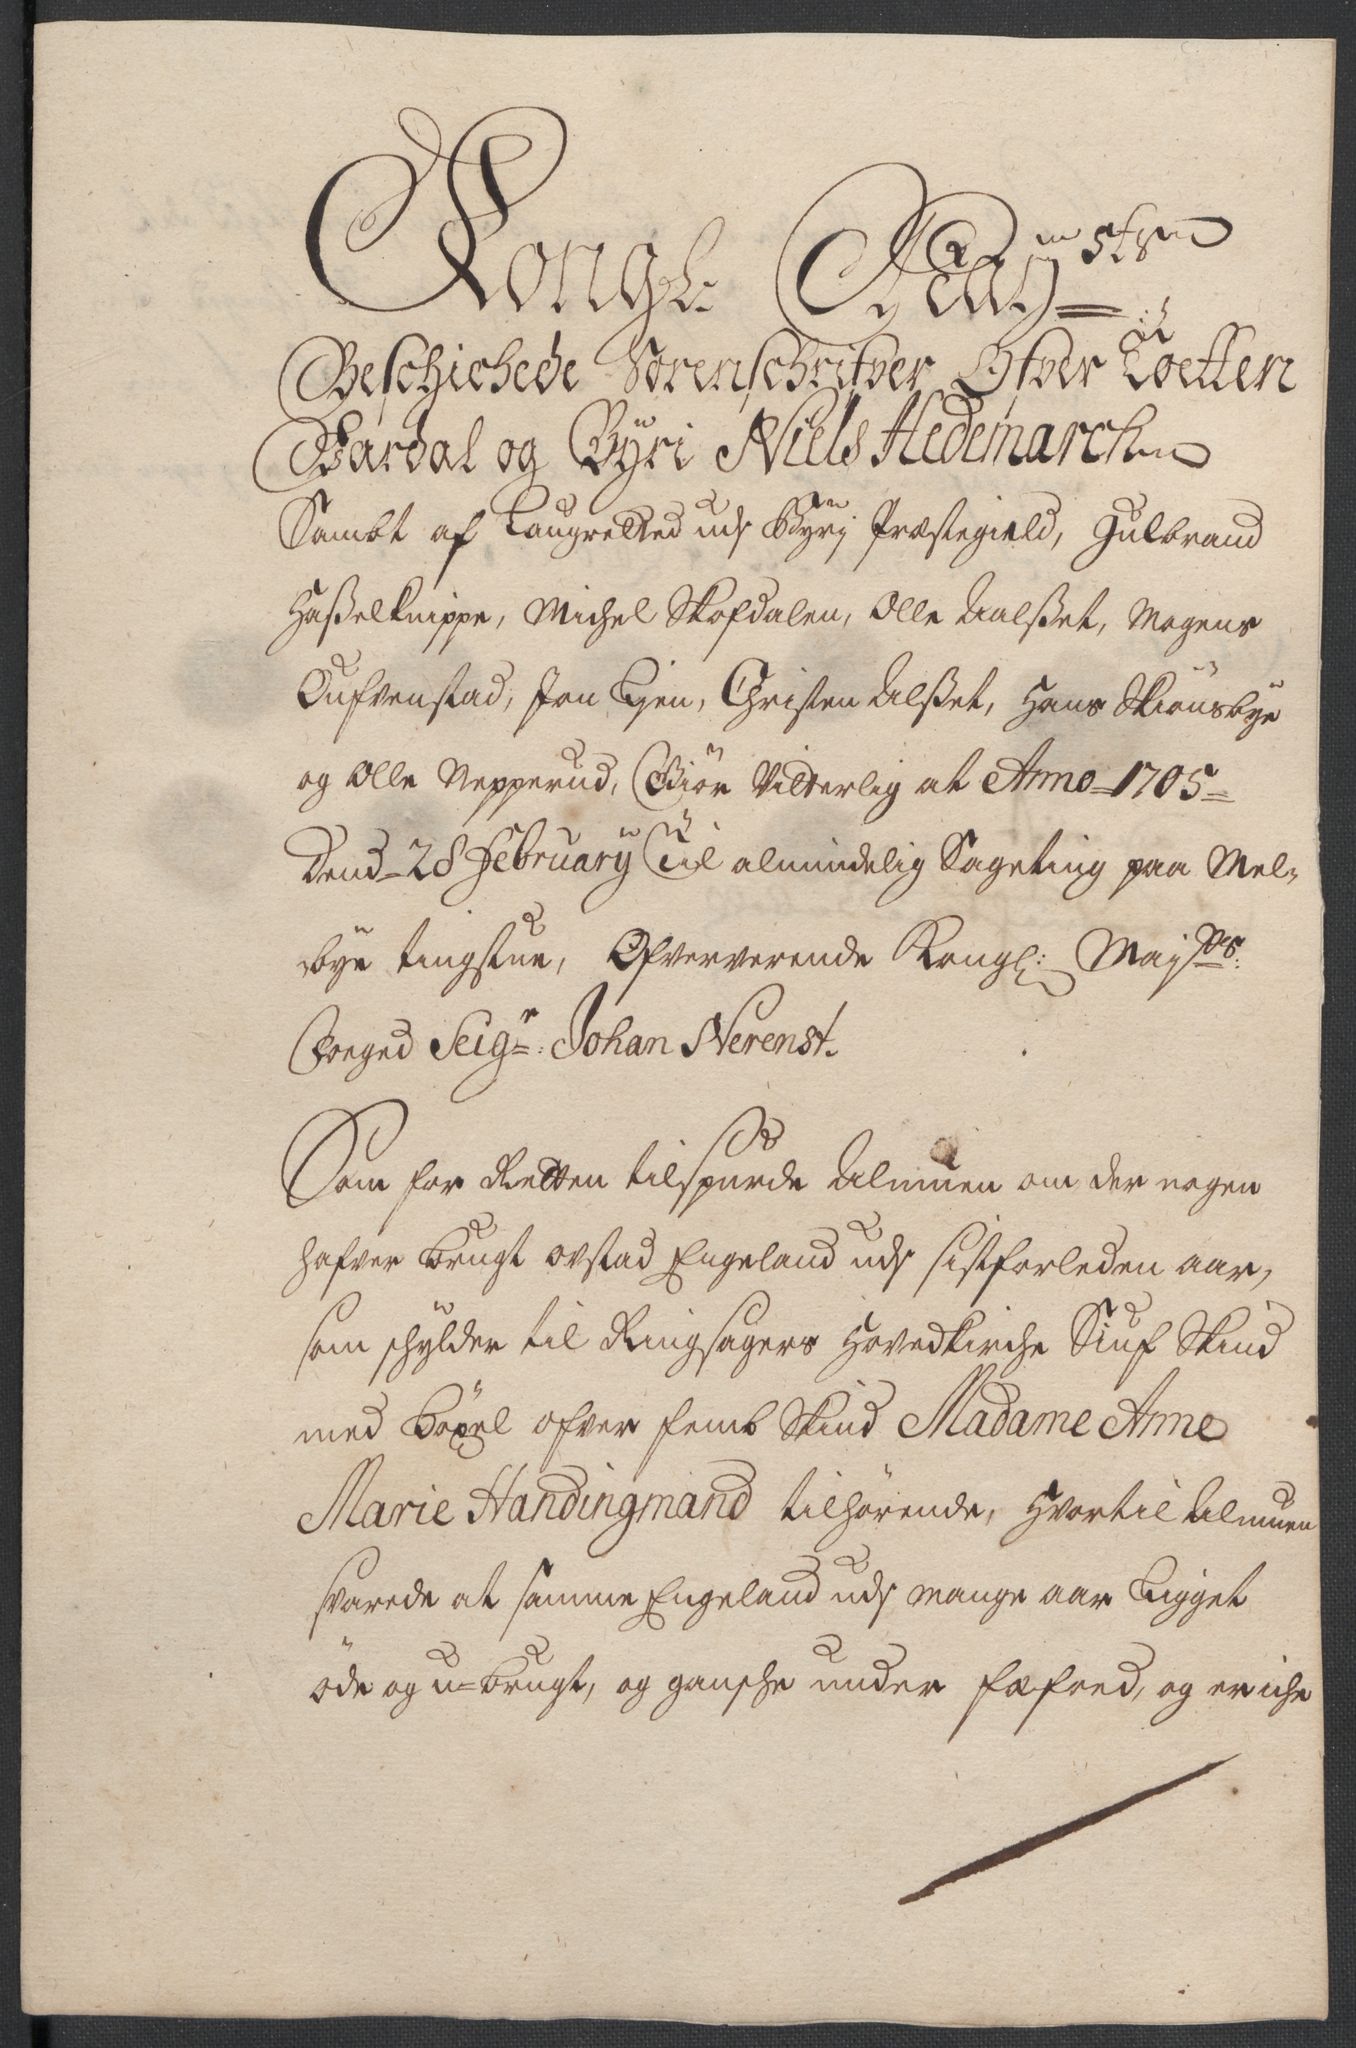 Kongl: Mayst:s
Beschichede Sorenschrifver Ofver Toetten
Wardal og Byri Niels Hedemarch
Sambt af Laugretted udj Byrj Præstegield, Gulbrand
Hasselknippe, Michel Skofdalen, Olle Aalsset, Mogens
Dufvenstad, Jon Ljen, Christen Alsset, Hans Skiønsbye
og Olle Nepperud, Giør Vitterlig at Anno 1705
Dend 28 February Til almindelig Sageting paa Mel-
bye tingstue, Ofververende Kongl: Mayts:
Foeged Seigr: Johan Nerenst.
Som for Retten tilspurde Almuen om der nogen
hafver brugt ovstad Engeland udj sistforleden aar,
som schylder til Ringsagers Hovedkirche Siuf Skind
med bøxel ofver femb Skind Madame Anne
Marie Handingmand tilhørende, Hvortil Almuen
svarede at samme Engeland udj mange aar Ligget
øde og u-brugt, og gansche under fæfoed, og er iche